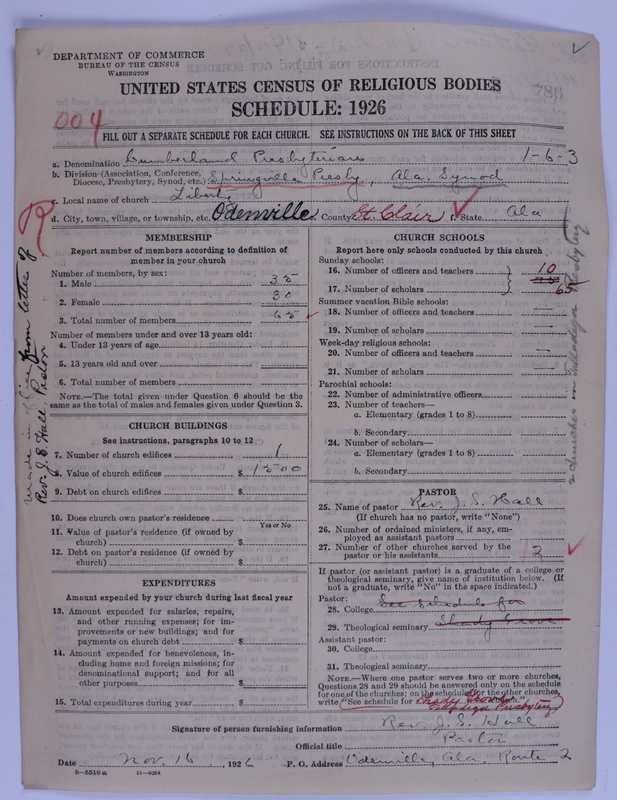 DEPARTMENT OF COMMERCE
BUREAU OF THE CENSUS
WASHINGTON
UNITED STATES CENSUS OF RELIGIOUS BODIES
SCHEDULE: 1926
786
004
FILL OUT A SEPARATE SCHEDULE FOR EACH CHURCH. SEE INSTRUCTIONS ON THE BACK OF THIS SHEET
a. Denomination Cumberland Presbyterian 1-6-3
b. Division (Association, Conference,
Diocese, Presbytery, Synod, etc.) Springville Presby, Ala. Synod
c. Local name of church Liberty
d. City, town, village, or township, etc. Odenville County St. Clair f. State Ala
R
made in office from letter of
Rev. J. S. Hall, Pastor
MEMBERSHIP
Report number of members according to definition of
member in your church
Number of members, by sex:
1. Male 35
2. Female 30
3. Total number of members 65
Number of members under and over 13 years old:
4. Under 13 years of age
5. 13 years old and over
6. Total number of members
NOTE.—The total given under Question 6 should be
same as the total of males and females given under Question 3.
CHURCH BUILDINGS
See instructions, paragraphs 10 to 12
7. Number of church edifices 1
8. Value of church edifices $ 1500
9. Debt on church edifices $
10. Does church own pastor's residence
Yes or No
11. Value of pastor's residence (if owned by
church) $
12. Debt on pastor's residence (if owned by
church) $
EXPENDITURES
Amount expended by your church during last fiscal year
13. Amount expended for salaries, repairs,
and other running expenses; for im-
provements or new buildings; and for
payments on church debt $
14. Amount expended for benevolences, in-
cluding home and foreign missions; for
denominational support; and for all
other purposes $
15. Total expenditures during year $
CHURCH SCHOOLS
Report here only schools conducted by this church
Sunday schools:
16. Number of officers and teachers 10
17. Number of scholars 65
Summer vacation Bible schools:
18. Number of officers and teachers —
19. Number of scholars —
Week-day religious schools:
20. Number of officers and teachers —
21. Number of scholars —
Parochial schools:
22. Number of administrative officers
23. Number of teachers—
a. Elementary (grades 1 to 8)
b. Secondary
24. Number of scholars—
a. Elementary (grades 1 to 8)
b. Secondary
PASTOR
25. Name of pastor Rev. J. S. Hall
(If church has no pastor, write "None")
26. Number of ordained ministers, if any, em-
ployed as assistant pastors
27. Number of other churches served by the
pastor or his assistants 2
If pastor (or assistant pastor) is a graduate of a college or
theological seminary, give name of institution below. (If
not a graduate, write "No" in the space indicated.)
Pastor:
28. College See Schedule for
29. Theological seminary Shady Grove
Assistant pastor:
30. College
31. Theological seminary
NOTE.—Where one pastor serves two or more churches,
Questions 28 and 29 should be answered only on the schedule
for one of the churches; on the schedules for the other churches,
write "See schedule for Shady Grove church."
Talladega Presbytery
Signature of person furnishing information Rev. J. S. Hall
Official title Pastor
Date Nov. 16, 1926 P. O. Address Odenville, Ala, Route 2
8-5518a 11-9054